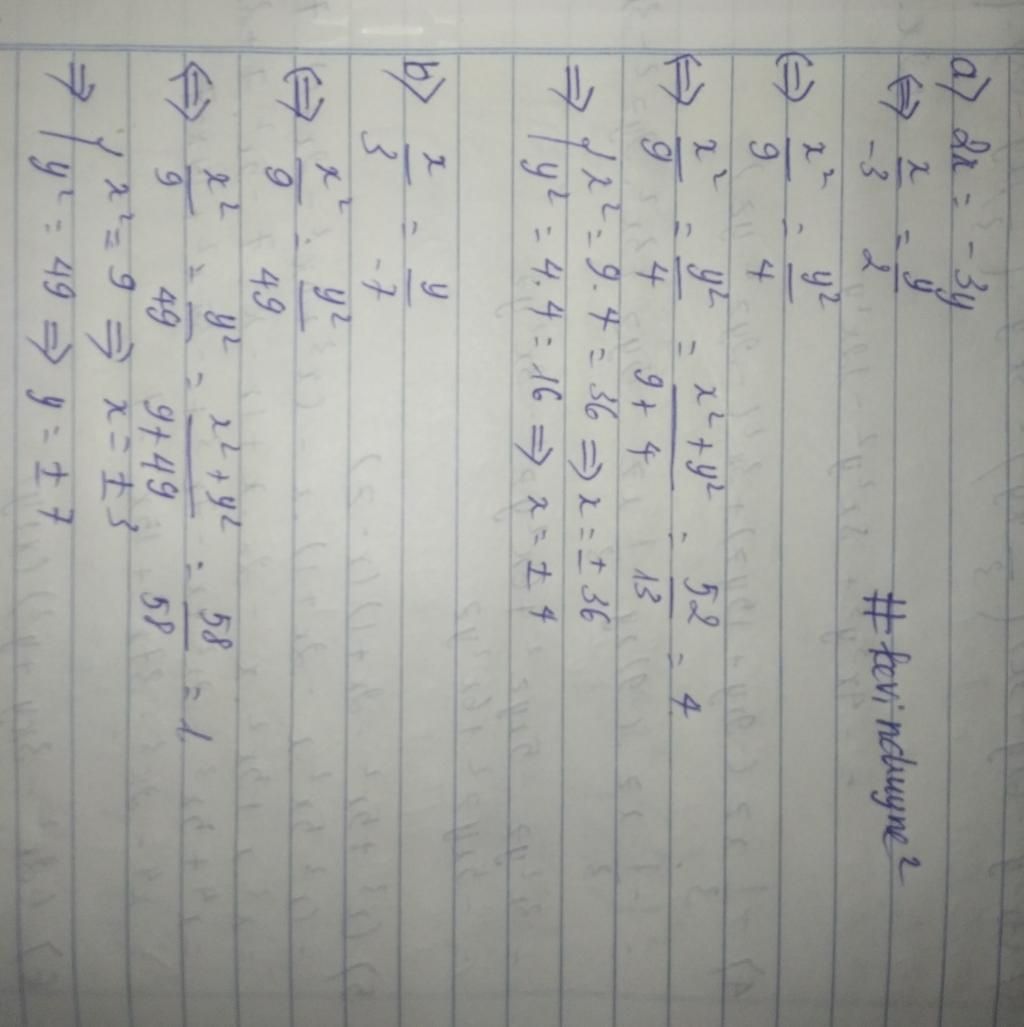 a) 2x = -3y
⇔ x/-3 = y/2
⇔ x²/9 = y²/4
⇔ x²/9 = y²/4 = x²+y²/9+4 = 52/13 = 4
⇒ { x² = 9.4 = 36 ⇒ x = ± 36
y² = 4.4 = 16 ⇒ x = ± 4
b) x/3 = y/-7
⇔ x²/9 = y²/49
⇔ x²/9 = y²/49 = x²+y²/9+49 = 58/58 = 1
⇒ { x² = 9 ⇒ x = ± 3
y² = 49 ⇒ y = ± 7